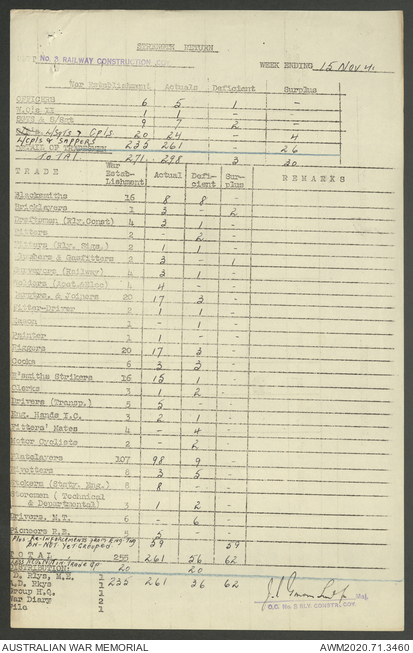 STRENGTH RETURN
No. 3 RAILWAY CONSTRUCTION COY
WEEK ENDING 15 Nov 41
War Establishment Actuals Deficient Surplus
OFFICERS 6 5 1 -
W.O's II 1 1 - -
9 7 2 -
L/Sgts & Cpls 20 24 - 4
L/cpls & Sappers 235 261 26
TOTAL 271 298 3 30
TRADE War Establishment Actual Deficient Surplus REMARKS
Blacksmiths 16 8 8 -
Bricklayers 1 3 - 2
Draftsmen (Rly.Const) 4 3 1 -
Fitters 2 - 2
Fitters (Rly. Sigs.) 2 1 1 -
Plumbers & Gasfitters 2 3 - 1
Surveyors (Railway) 4 3 1 -
Welders (Acet.&Elec) 4 4 - -
Carptrs. & Joiners 20 17 3
2 1 1 -
Mason 1 - 1
Painter 1 1 - -
Riggers 20 17 3
Cooks 6 3 3
B'smiths Strikers 16 15 1
Clerks 3 1 2
Drivers (Transp.) 5 5 -
Eng. Hands I.C. 3 2 1
Fitters' Mates 4 - 4
Motor Cyclists 2 - 2
Platelayers 107 98 9
Rivetters 8 3 5
Stokers (Staty. Eng.) 8 8 - -
Storemen (Technical
& Departmental) 3 1 2
Drivers, M.T. 6 - 6
Pioneers R.E. 5 -
Plus Re-inforcements from Eng Trg
Bn - Not Yet Grouped 59 59
TOTAL 255 261 56 62
20 20
DISTRIBUTION:
D. Rlys, M.E. 1 235 261 36 62
A.D. Rkys 1
Group H.Q. 1
War Diary 2
File 1
Maj.
O.C. No. 3 RLY. CONSTR. COY.
AUSTRALIAN WAR MEMORIAL
AWM2020.71.3460